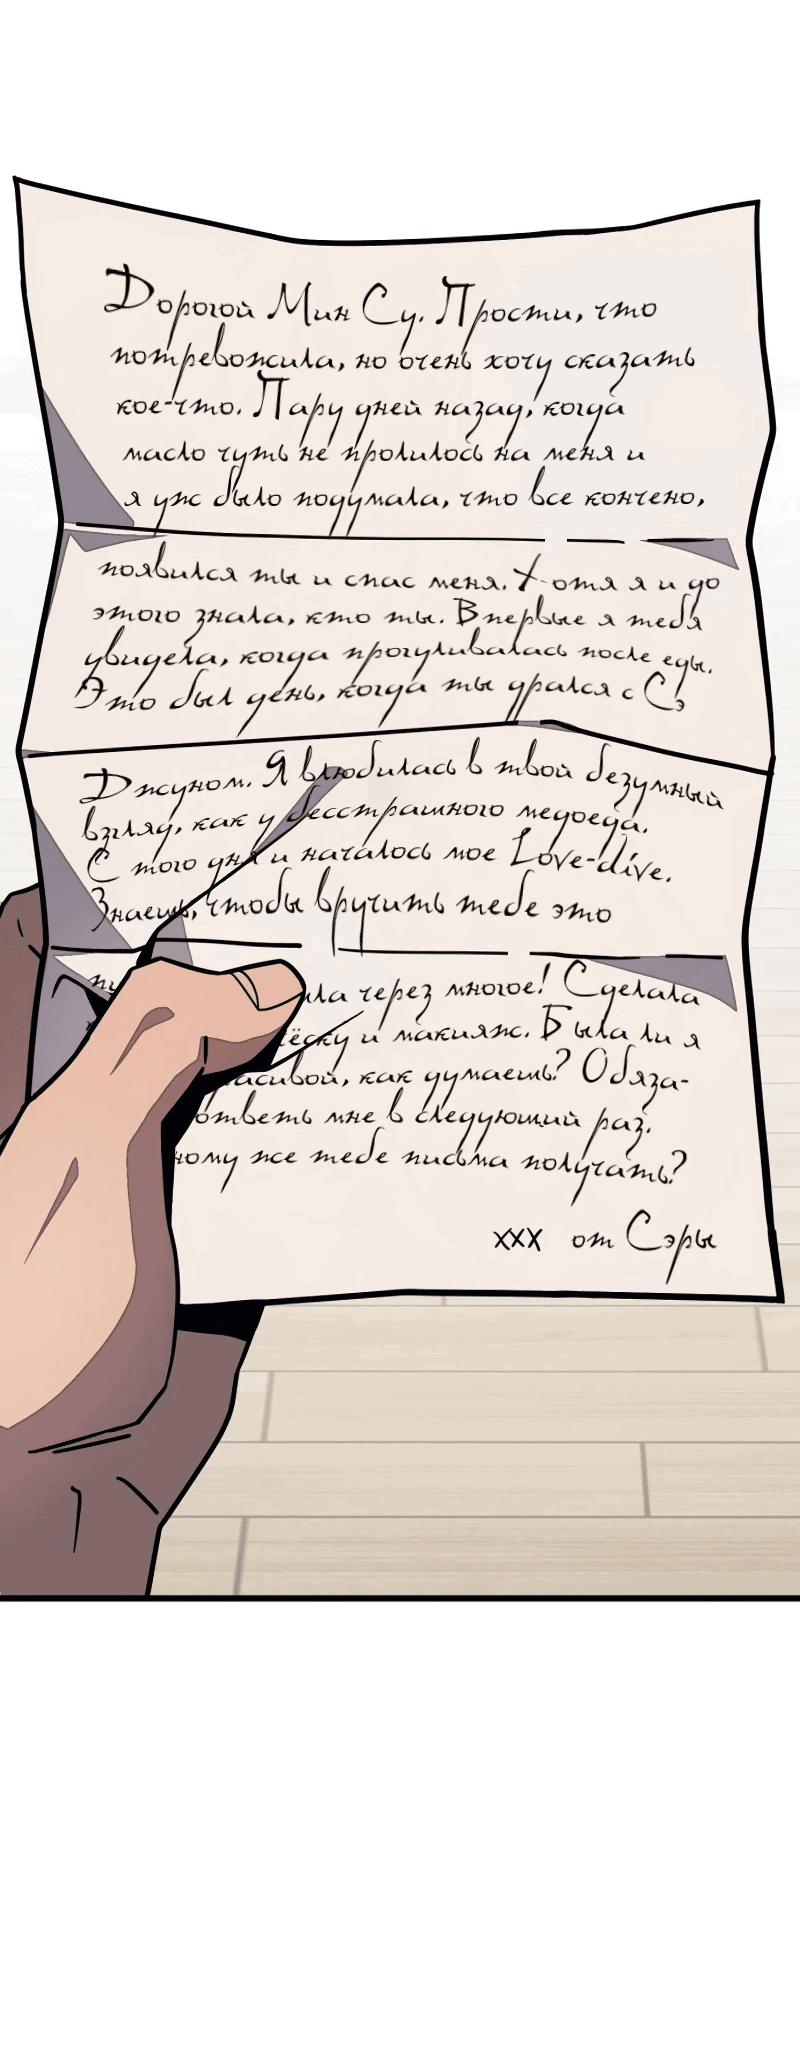 Дорогой Мин Су. Прости, что
потревожила, но очень хочу сказать
кое-что. Пару дней назад, когда
масло чуть не пролилось на меня и
я уж было подумала, что все кончено,
появился ты и спас меня. Хотя я и до
этого знала, кто ты. Впервые я тебя
увидела, когда прогуливалась после еды.
Это был день, когда ты дрался с Сэ
Джуном. Я влюбилась в твой безумный
взгляд, как у бесстрашного медоеда.
С того дня и началось мое Love-dive.
Знаешь, чтобы вручить тебе это
через многое! Сделала
и макияж. Была ли я
как думаешь? Обяза-
ответь мне в следующий раз.
же тебе письма получать?
xxx от Сэры